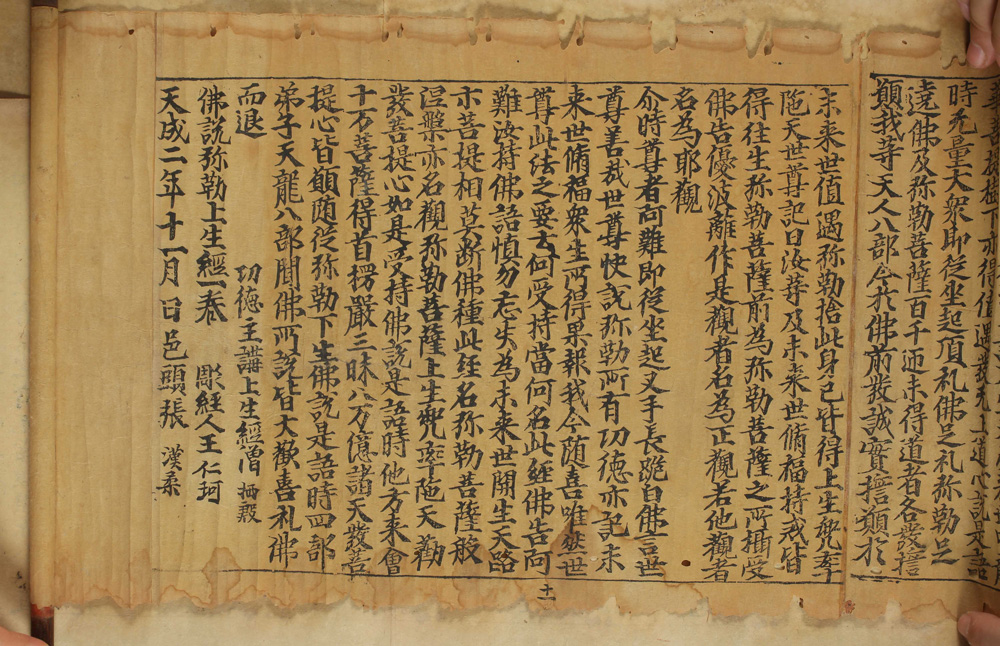 時无量大衆即從坐起頂礼佛足礼弥勒足
遶佛及弥勒菩薩百千迊未得道者各發擔
願我等天人八部今於佛前發誠實擔願於
未來世值遇弥勒捨此身已皆得上生兜率
陁天世尊記曰汝等及未來世脩福持戒皆
得往生弥勒菩薩前為弥勒菩薩之所攝受
佛告優波離作是觀者名為正觀若他觀者
名為耶觀
尒時尊者阿難即從坐起叉手長跪白佛言世
尊善哉世尊快說弥勒所有功德亦記未
來世脩福衆生所得果報我今随喜唯然世
尊此法之要云何受持當何名此經佛告阿
難汝持佛語慎勿忘失為未來世開生天路
示菩提相莫断佛種此經名弥勒菩薩般
涅槃亦名觀弥勒菩薩上生兜率陁天勸
發菩提心如是受持佛說是語時他方來會
十万菩薩得首楞嚴三昧八万億諸天發菩
提心皆願随從弥勒下生佛說是語時四部
弟子天龍八部聞佛所說皆大歡喜礼佛
而退 功德主講上生經僧 栖殷
佛說弥勒上生經一卷 彫經人王仁珂
天成二年十一月 日邑頭張 漢柔
十一